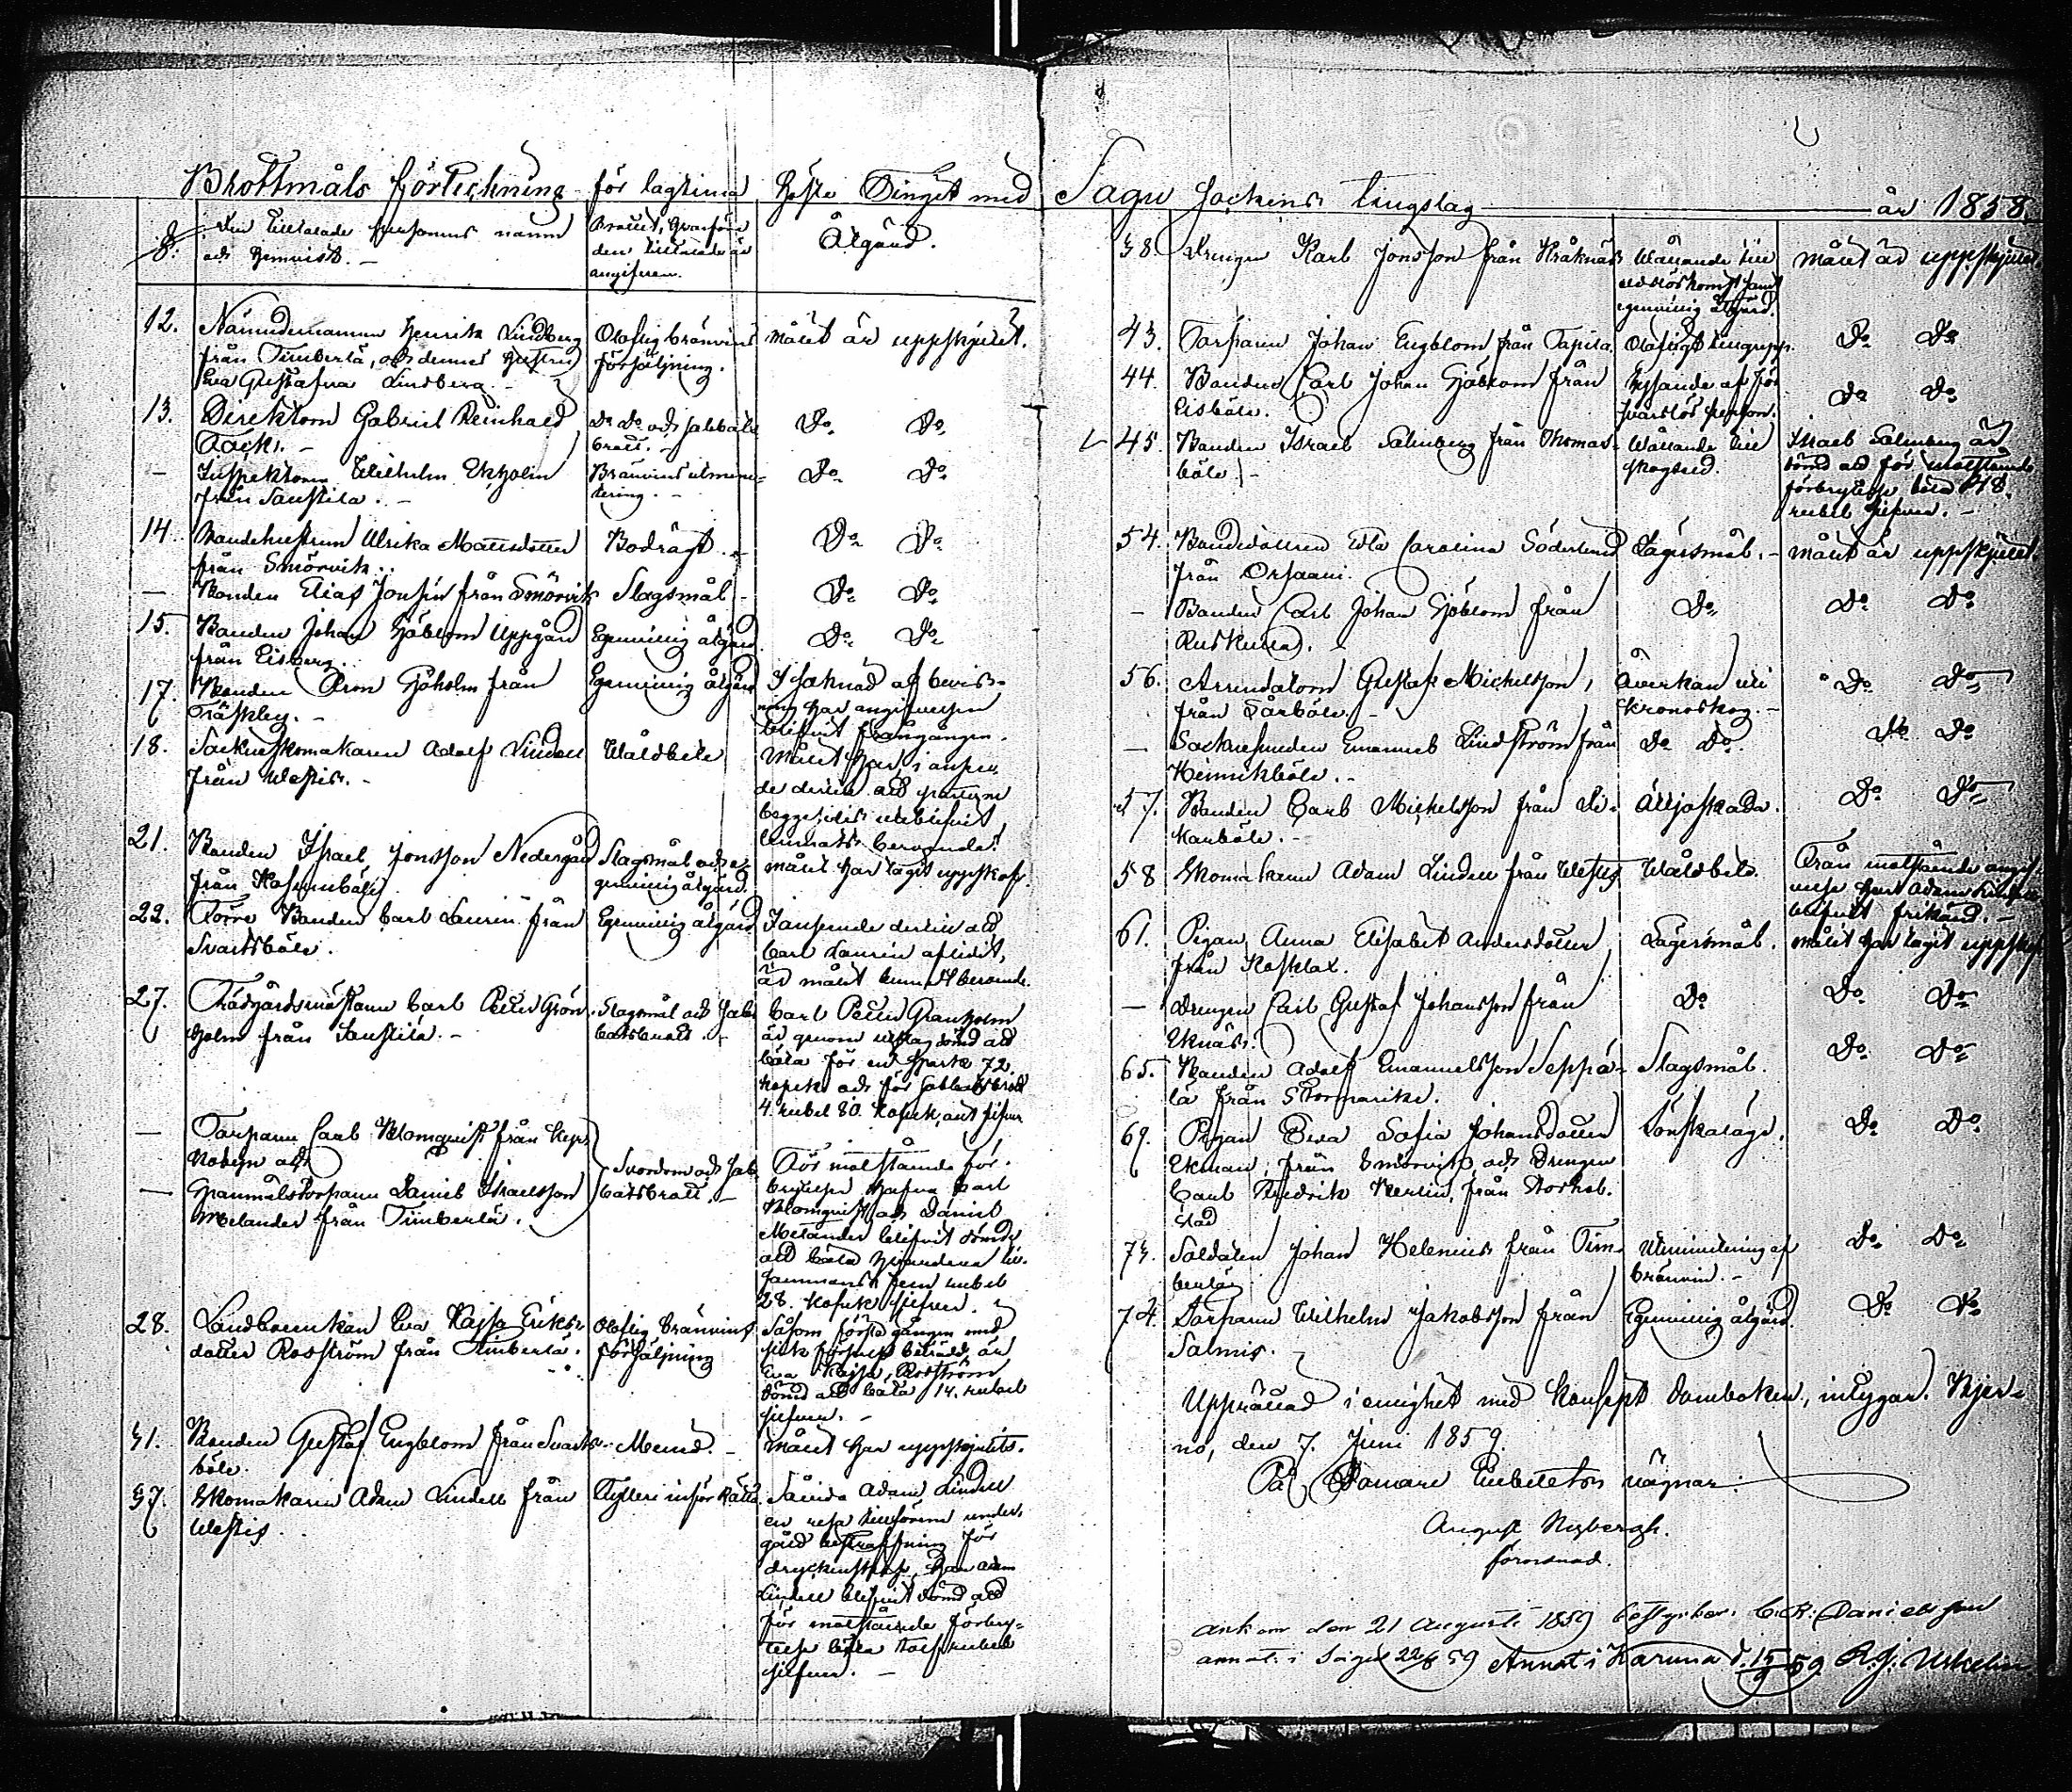 Brottmåls förteckning för lagtima höste Tinget med Sagu Sockens tingslag år 1858
§. Den tilltalade personens namn
och hemvist. –
Brottet, hvarföre
den tilltalade är
angifven.
Åtgärd.
12. Nämndemannen Henrik Lindberg
från Timberlä, och dennes hustru
Eva Gustafva Lindberg. –
Olaflig bränvins
försäljning.
målet är uppskjutet.
13. Direktorn Gabriel Reinhold
Do Do och sabbats
brott. –
Do Do
– Inspektoren Wilhelm Ekholm
från Saustila. –
Bränvins utminu-
tering. –
Do Do
14. Bondehustrun Ulrika Mattsdotter
från Smörvik.
Bodrägt. –
Do Do
– Bonden Elias Jonsin från Smörvik
Slagsmål –
Do Do
15. Bonden Johan Sjöblom Uppgård
från Eisberg.
Egenvillig åtgärd.
Do Do
17. Bonden Aron Sjöholm från
Träskby. –
Egenvillig åtgärd
I saknad af bevis-
ning har angifvelsen
blifvit
18. Sockneskomakaren Adolf Lindell
från Westis. –
Wåldbete
Målet har, i anseen-
de dertill att parterne
beggesidis uteblifvit,
lemnats beroende.
21. Bonden Israel Jonsson Nedergård
från
Slagsmål och e-
genvillig åtgärd.
målet har tagit uppskof.
22. Förre Bonden Carl Laurin från
Svartsböle.
Egenvillig åtgärd
I anseende dertill att
Carl Laurin aflidit,
är målet lemnadt beroende.
27. Trädgårdsmästaren Carl Petter Grön-
holm från Saustila. –
Slagsmål och sab-
batsbrott. –
Carl Petter Granholm
är genom utslag dömd att
böta för en 72.
kopek och för sabbatsbrott
4. rubel 80. kopek, allt silfver
– Torparn Carl Blomqvist från
och
– Spanmålstorparn Daniel Israelsson
Melander från Timberlä.
Svordom och sab-
batsbrott. –
För motstående för-
brytelse hafva Carl
Blomqvist och Daniel
Melander blifvit dömde
att böta hvardera till-
sammans fem rubel
28. kopek silfver.
28. Landbo enkan Eva Kajsa Eriks-
dotter Rosström från Timberlä.
Olaflig bränvins
försäljning
Såsom första gången med
slik förseelse beträdd, är
Eva Kajsa Rosström
dömd att böta 14. rubel
silfver. –
31. Bonden Gustaf Engblom från Svarts-
böle.
Mened. –
Målet har uppskjutits.
37. Skomakarin Adam Lindell från
Westis.
Fylleri inför Rätta.
Adam Lindell
en resa tillförene under-
gått bestraffning för
dryckenskap, har Adam
Lindell blifvit dömd att
för motstående förbry-
telse böta rubel
silfver. –
38. Drengen Karl Jonsson från Kråknäs
Wållande till
samt
egenvillig åtgärd.
målet är uppskjutet.
43. Torparn Johan Engblom från Tapila.
Olofligt
Do Do
44. Bonden Carl Johan Sjöblom från
Eisböle.
Hysande af för-
svarslös person.
Do Do
45. Bonden Israel Salmberg från Thomas-
böle. –
Wållande till
skogseld.
Israel Salmberg är
dömd att för motstående
förbrytelse böta 48.
rubel silfver. –
54. Bondedottren Eda Carolina Söderlund
från Orsaari.
Lägersmål. –
målet är uppskjutet.
– Bonden Carl Johan Sjöblom från
Ruskulla.
Do
Do Do
56. Arrendatorn Gustaf Mickelsson,
från Sarböle. –
Åverkan uti
kronoskog. –
Do Do
– Socknesmeden Emanuel Lindström från
Heinrikböle. –
Do Do.
Do Do
57. Bonden Carl Mickelsson från Li-
kanböle. –
Do Do
58 Skomakaren Adam Lindell från Westis
Wåldbete.
Från motstående angif-
velse har Adam Lindell
blifvit frikänd. –
61. Pigan Anna Elisabet Andersdotter
från Kasklax.
Lägersmål.
målet har tagit uppskof
– Drengen Carl Gustaf Johansson från
Eknäs.
Do
Do Do
65. Bonden Adolf Emanuelsson Seppä-
lä från Stormariks.
Slagsmål.
Do Do
69. Pigan Eva Sofia Johansdotter
Ekman, från Smörvik och Drengen
Carl Fredrik Berlin, från
Lönskaläge.
Do Do
73. Soldaten Johan Helenius från Tim-
berlä
Utminutering af
bränvin. –
Do Do
74. Torparn Wilhelm Jakobsson från
Salmis.
Egenvillig åtgärd.
Do Do
Upprättad i enighet med Konsept domboken, intygar. Bjer-
no, den 7. Juni 1859.
På Domare Embetets vägnar:
August Nybergh.
förordnad.
Ankom den 21 Augusti 1859 C. R. Danielsson
annot. i Sagu 22/8 59 Annot i Karuna d. 15/9 59